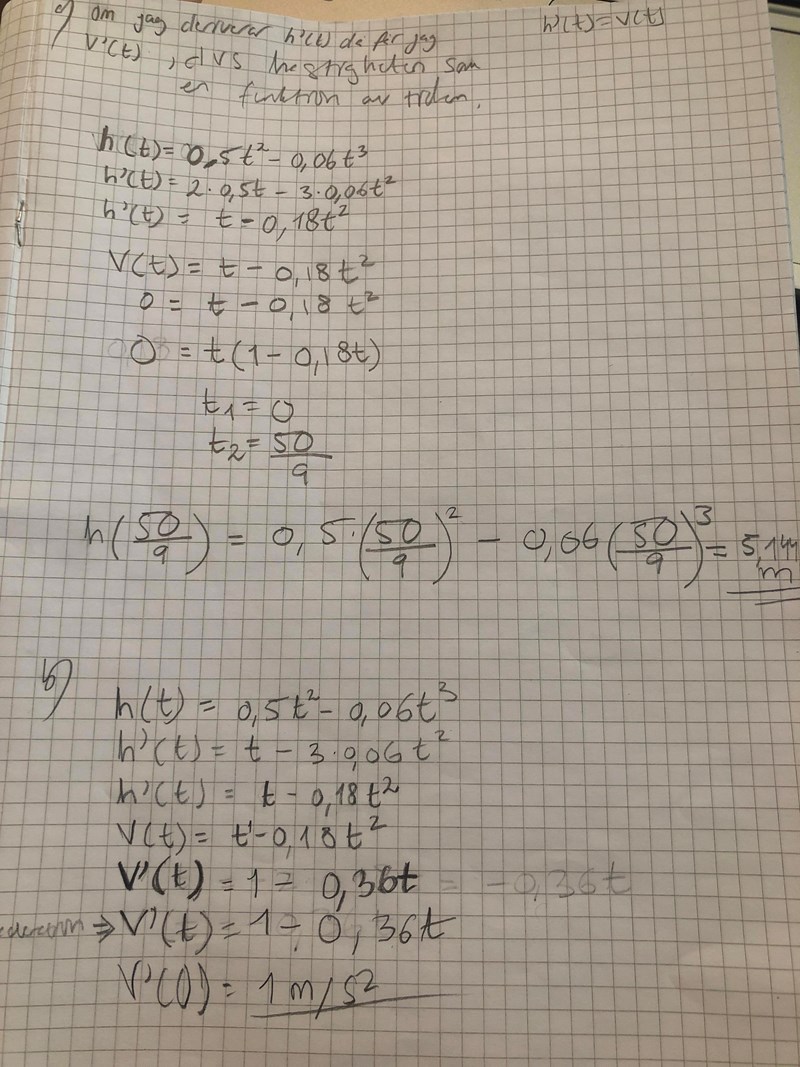 a) Om jag deriverar h'(t) då får jag
h'(t) = V(t)
V'(t), dvs hastigheten som
en funktion av tiden.
h(t) = 0,5t² - 0,06t³
h'(t) = 2·0,5t - 3·0,06t²
h'(t) = t - 0,18t²
V(t) = t - 0,18t²
0 = t - 0,18t²
0 = t(1 - 0,18t)
t₁ = 0
t₂ = 50/9
h(50/9) = 0,5·(50/9)² - 0,06(50/9)³ = 5,144 m
b)
h(t) = 0,5t² - 0,06t³
h'(t) = t - 3·0,06t²
h'(t) = t - 0,18t²
V(t) = t - 0,18t²
V'(t) = 1 - 0,36t = -0,36t
⇒ V'(t) = 1 - 0,36t
V'(0) = 1 m/s²